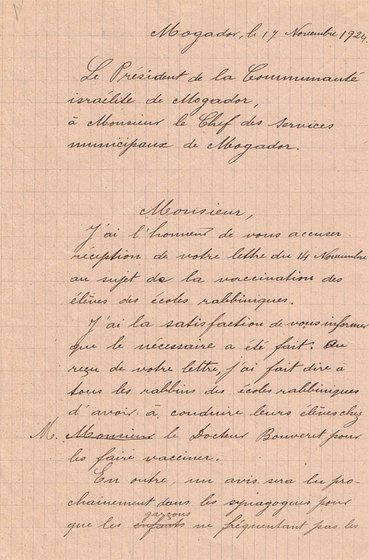 Mogador, le 17 Novembre 1924.
Le Président de la Communauté
israélite de Mogador,
à Monsieur le Chef des Services
municipaux de Mogador.
Monsieur,
J'ai l'honneur de vous accuser
réception de votre lettre du 14 Novembre
au sujet de la vaccination des
élèves des écoles rabbiniques.
J'ai la satisfaction de vous informer
que le nécessaire a été fait. Au
reçu de votre lettre, j'ai fait dire à
tous les rabbins des écoles rabbiniques
d'avoir à conduire leurs élèves chez
M. Monsieur le Docteur Bouveret pour
les faire vacciner.
En outre, un avis sera lu pro-
chainement dans les synagogues pour
garçons
que les enfants ne fréquentant pas les